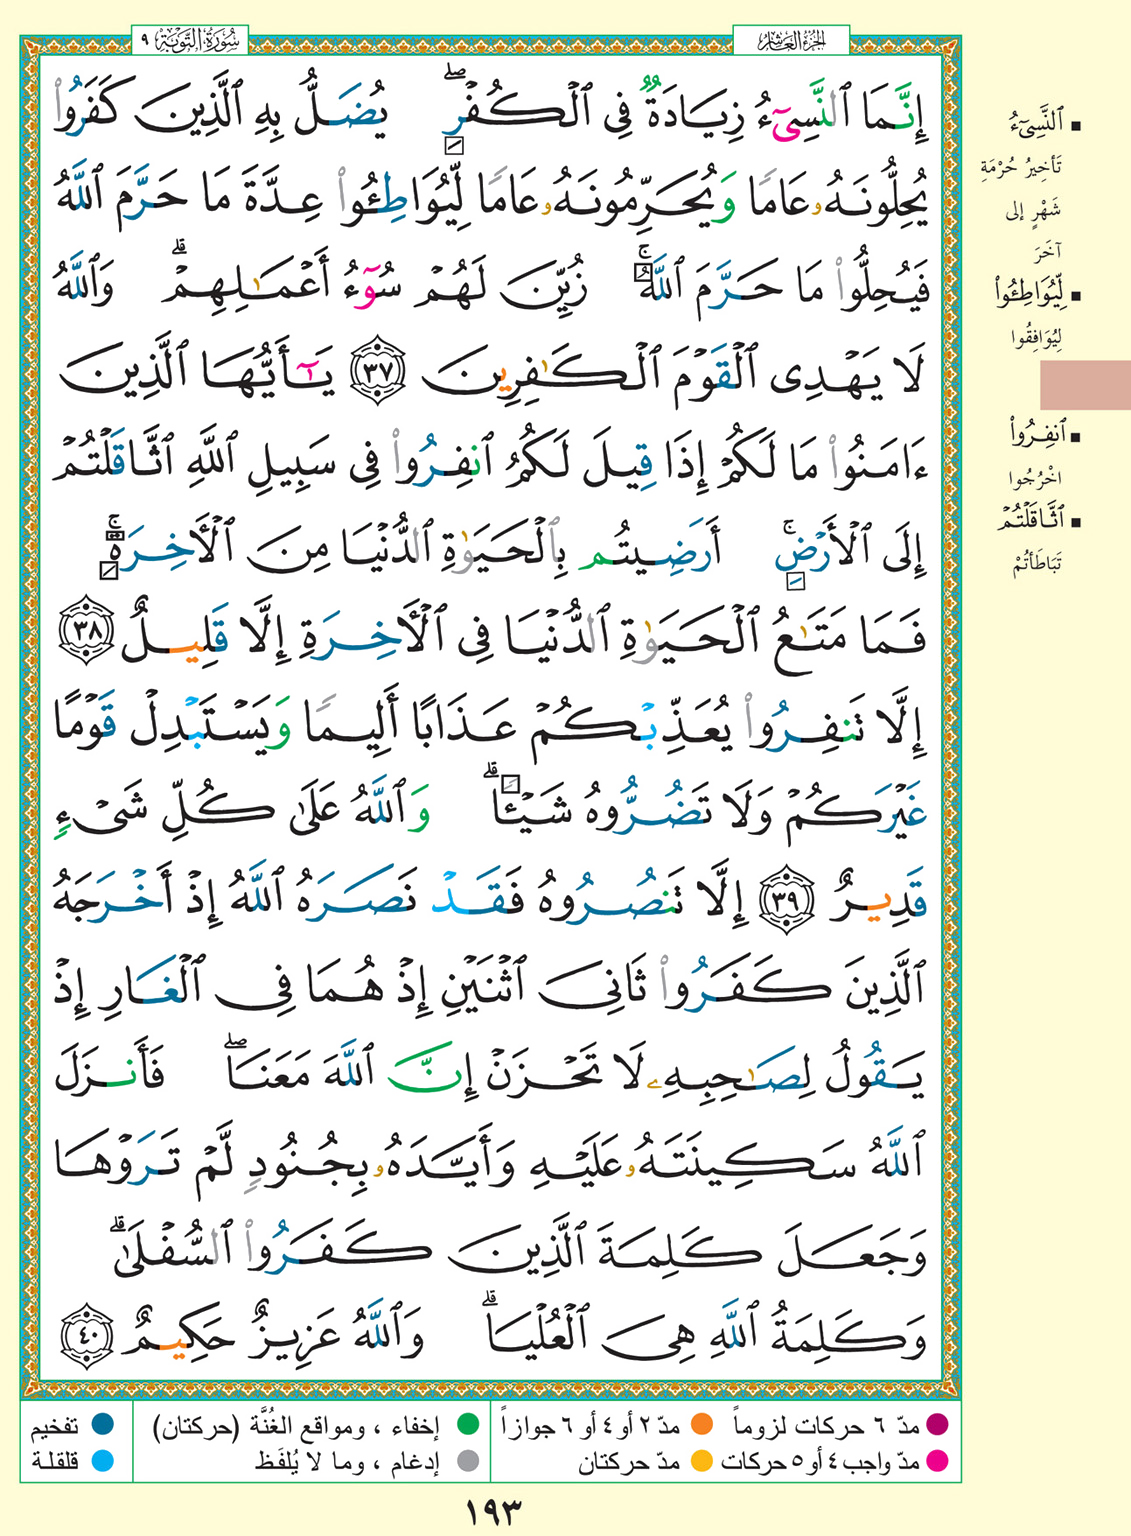 الجزء العاشر
سُورَةُ التَّوْبَة ٩
إِنَّمَا ٱلنَّسِىٓءُ زِيَادَةٌ فِى ٱلْكُفْرِ ۖ يُضَلُّ بِهِ ٱلَّذِينَ كَفَرُوا۟
يُحِلُّونَهُۥ عَامًا وَيُحَرِّمُونَهُۥ عَامًا لِّيُوَاطِـُٔوا۟ عِدَّةَ مَا حَرَّمَ ٱللَّهُ
فَيُحِلُّوا۟ مَا حَرَّمَ ٱللَّهُ ۚ زُيِّنَ لَهُمْ سُوٓءُ أَعْمَـٰلِهِمْ ۗ وَٱللَّهُ
لَا يَهْدِى ٱلْقَوْمَ ٱلْكَـٰفِرِينَ ٣٧ يَـٰٓأَيُّهَا ٱلَّذِينَ
ءَامَنُوا۟ مَا لَكُمْ إِذَا قِيلَ لَكُمُ ٱنفِرُوا۟ فِى سَبِيلِ ٱللَّهِ ٱثَّاقَلْتُمْ
إِلَى ٱلْأَرْضِ ۚ أَرَضِيتُم بِٱلْحَيَوٰةِ ٱلدُّنْيَا مِنَ ٱلْـَٔاخِرَةِ ۚ
فَمَا مَتَـٰعُ ٱلْحَيَوٰةِ ٱلدُّنْيَا فِى ٱلْـَٔاخِرَةِ إِلَّا قَلِيلٌ ٣٨
إِلَّا تَنفِرُوا۟ يُعَذِّبْكُمْ عَذَابًا أَلِيمًا وَيَسْتَبْدِلْ قَوْمًا
غَيْرَكُمْ وَلَا تَضُرُّوهُ شَيْـًٔا ۗ وَٱللَّهُ عَلَىٰ كُلِّ شَىْءٍ
قَدِيرٌ ٣٩ إِلَّا تَنصُرُوهُ فَقَدْ نَصَرَهُ ٱللَّهُ إِذْ أَخْرَجَهُ
ٱلَّذِينَ كَفَرُوا۟ ثَانِىَ ٱثْنَيْنِ إِذْ هُمَا فِى ٱلْغَارِ إِذْ
يَقُولُ لِصَـٰحِبِهِۦ لَا تَحْزَنْ إِنَّ ٱللَّهَ مَعَنَا ۖ فَأَنزَلَ
ٱللَّهُ سَكِينَتَهُۥ عَلَيْهِ وَأَيَّدَهُۥ بِجُنُودٍ لَّمْ تَرَوْهَا
وَجَعَلَ كَلِمَةَ ٱلَّذِينَ كَفَرُوا۟ ٱلسُّفْلَىٰ ۗ
وَكَلِمَةُ ٱللَّهِ هِىَ ٱلْعُلْيَا ۗ وَٱللَّهُ عَزِيزٌ حَكِيمٌ ٤٠
ٱلنَّسِىٓءُ
تَأخِيرُ حُرْمَةِ
شَهْرٍ إلى
آخَرَ
لِّيُوَاطِـُٔوا۟
لِيُوَافِقُوا
ٱنفِرُوا۟
اخْرُجُوا
ٱثَّاقَلْتُمْ
تَبَاطَأتُمْ
مدّ ٦ حركات لزوماً
مدّ ٢ أو ٤ أو ٦ جوازاً
إخفاء ، ومواقع الغُنَّة (حركتان)
تفخيم
مدّ واجب ٤ أو ٥ حركات
مدّ حركتان
إدغام ، وما لا يُلفَظ
قلقلة
١٩٣